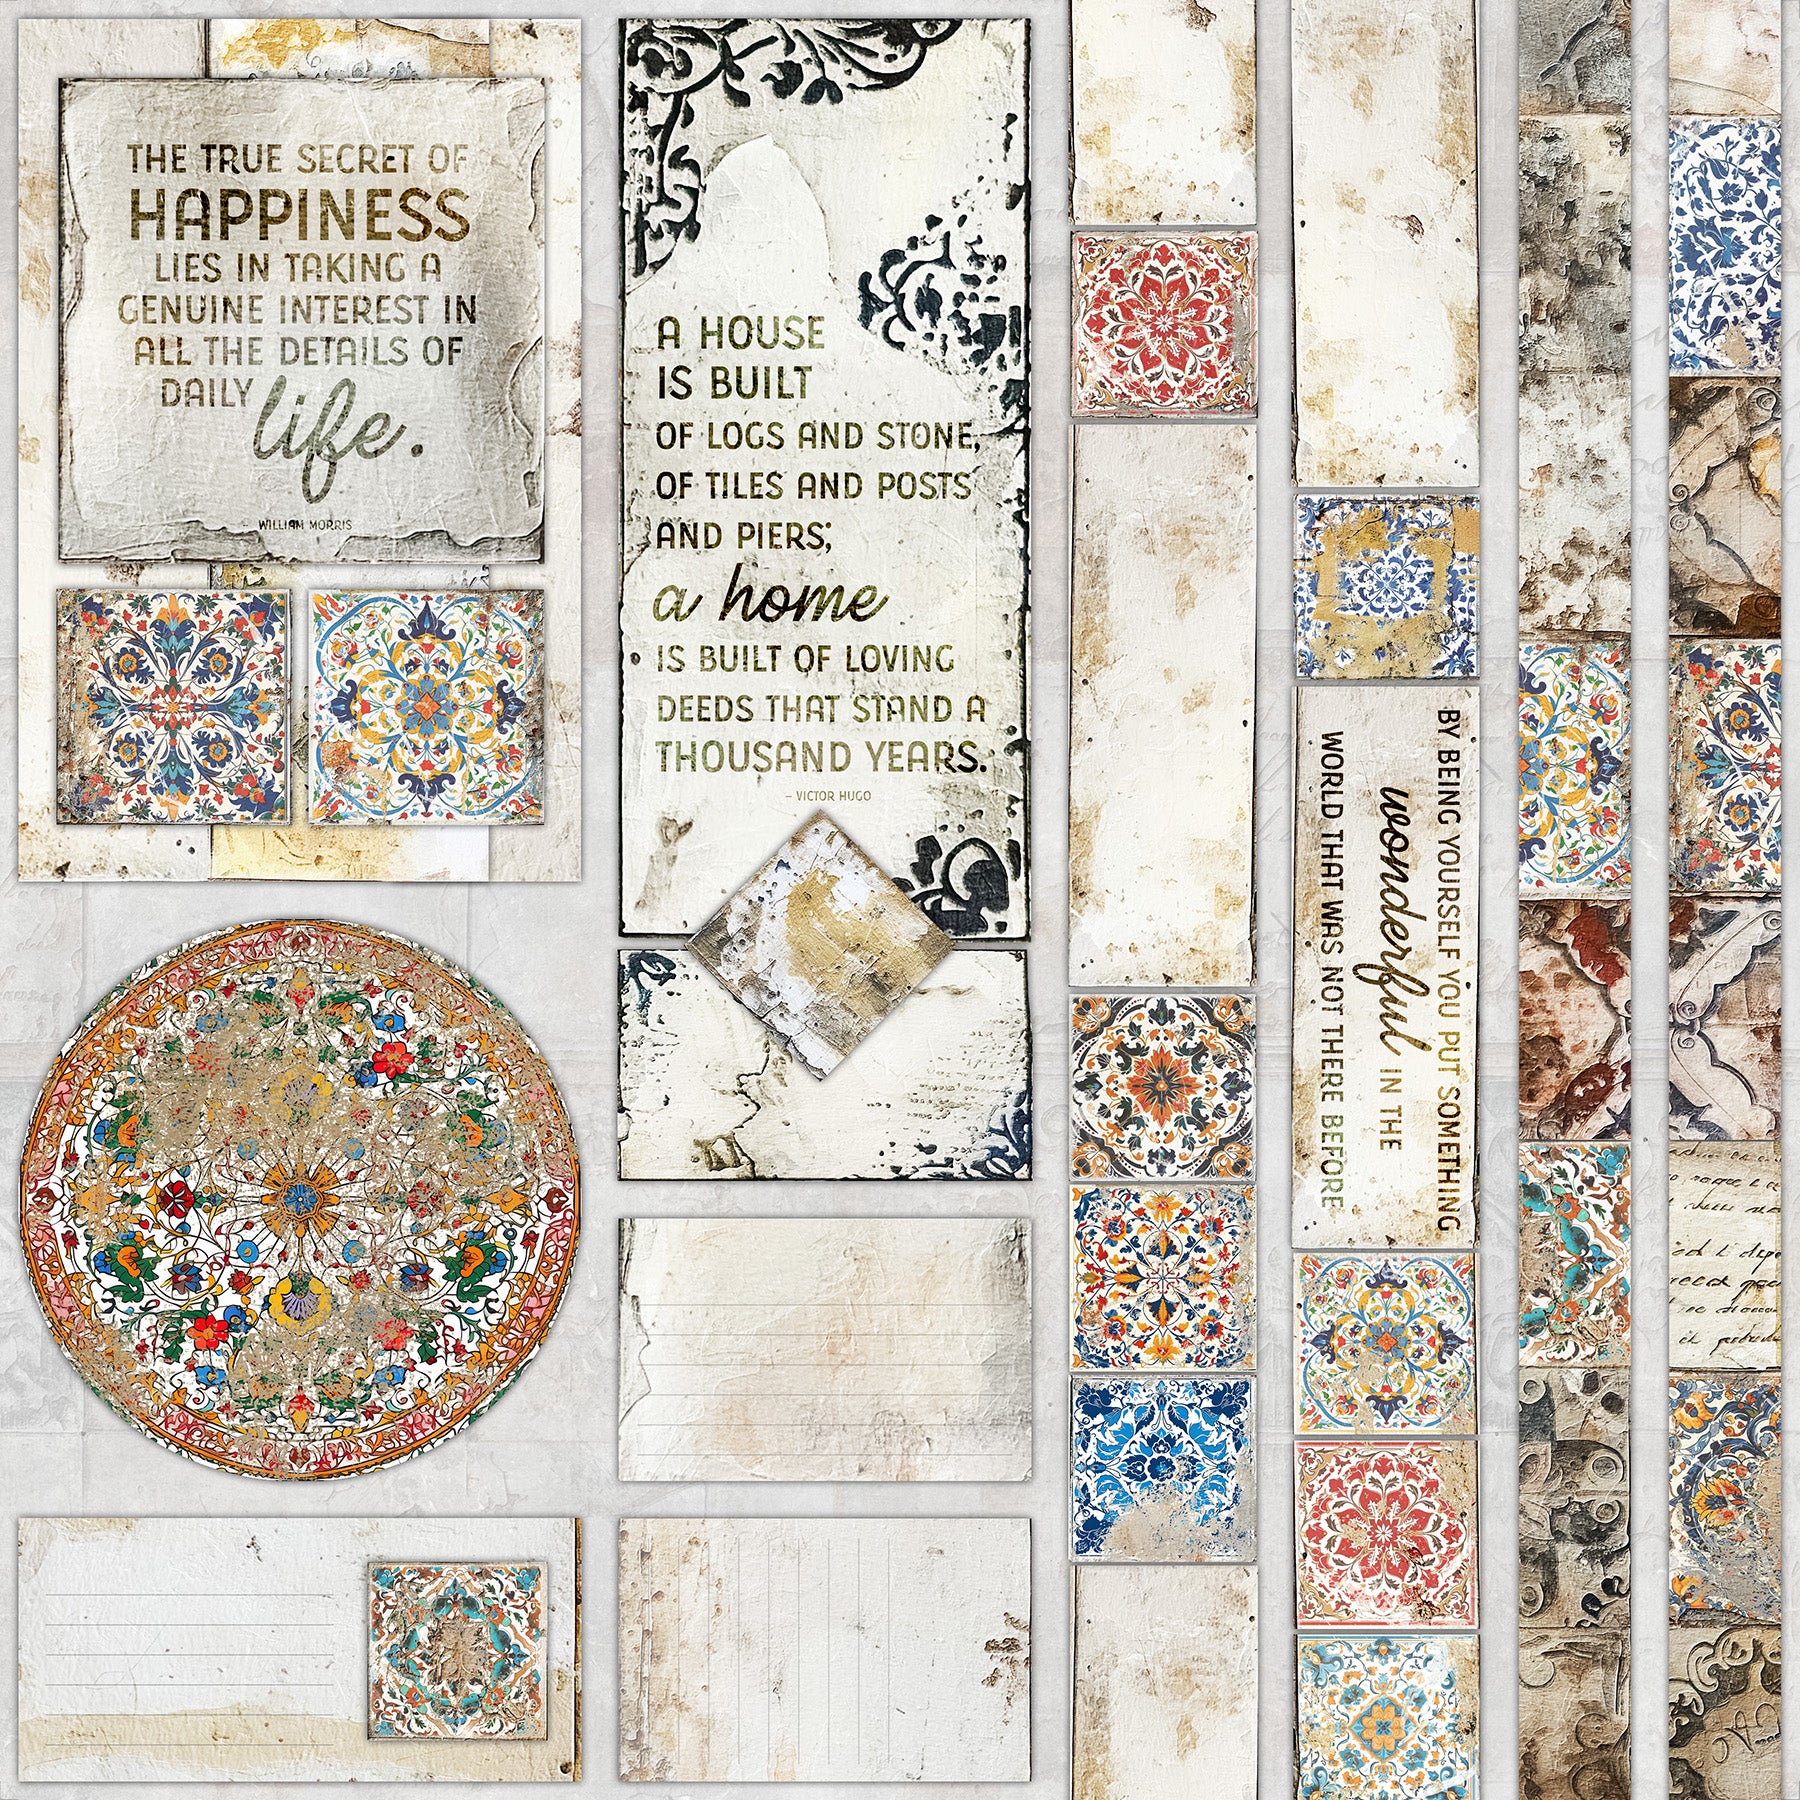 THE TRUE SECRET OF
HAPPINESS
LIES IN TAKING A
GENUINE INTEREST IN
ALL THE DETAILS OF
DAILY life.
WILLIAM MORRIS
A HOUSE
IS BUILT
OF LOGS AND STONE,
OF TILES AND POSTS
AND PIERS;
a home
IS BUILT OF LOVING
DEEDS THAT STAND A
THOUSAND YEARS.
– VICTOR HUGO
BY BEING YOURSELF YOU PUT SOMETHING
wonderful IN THE
WORLD THAT WAS NOT THERE BEFORE